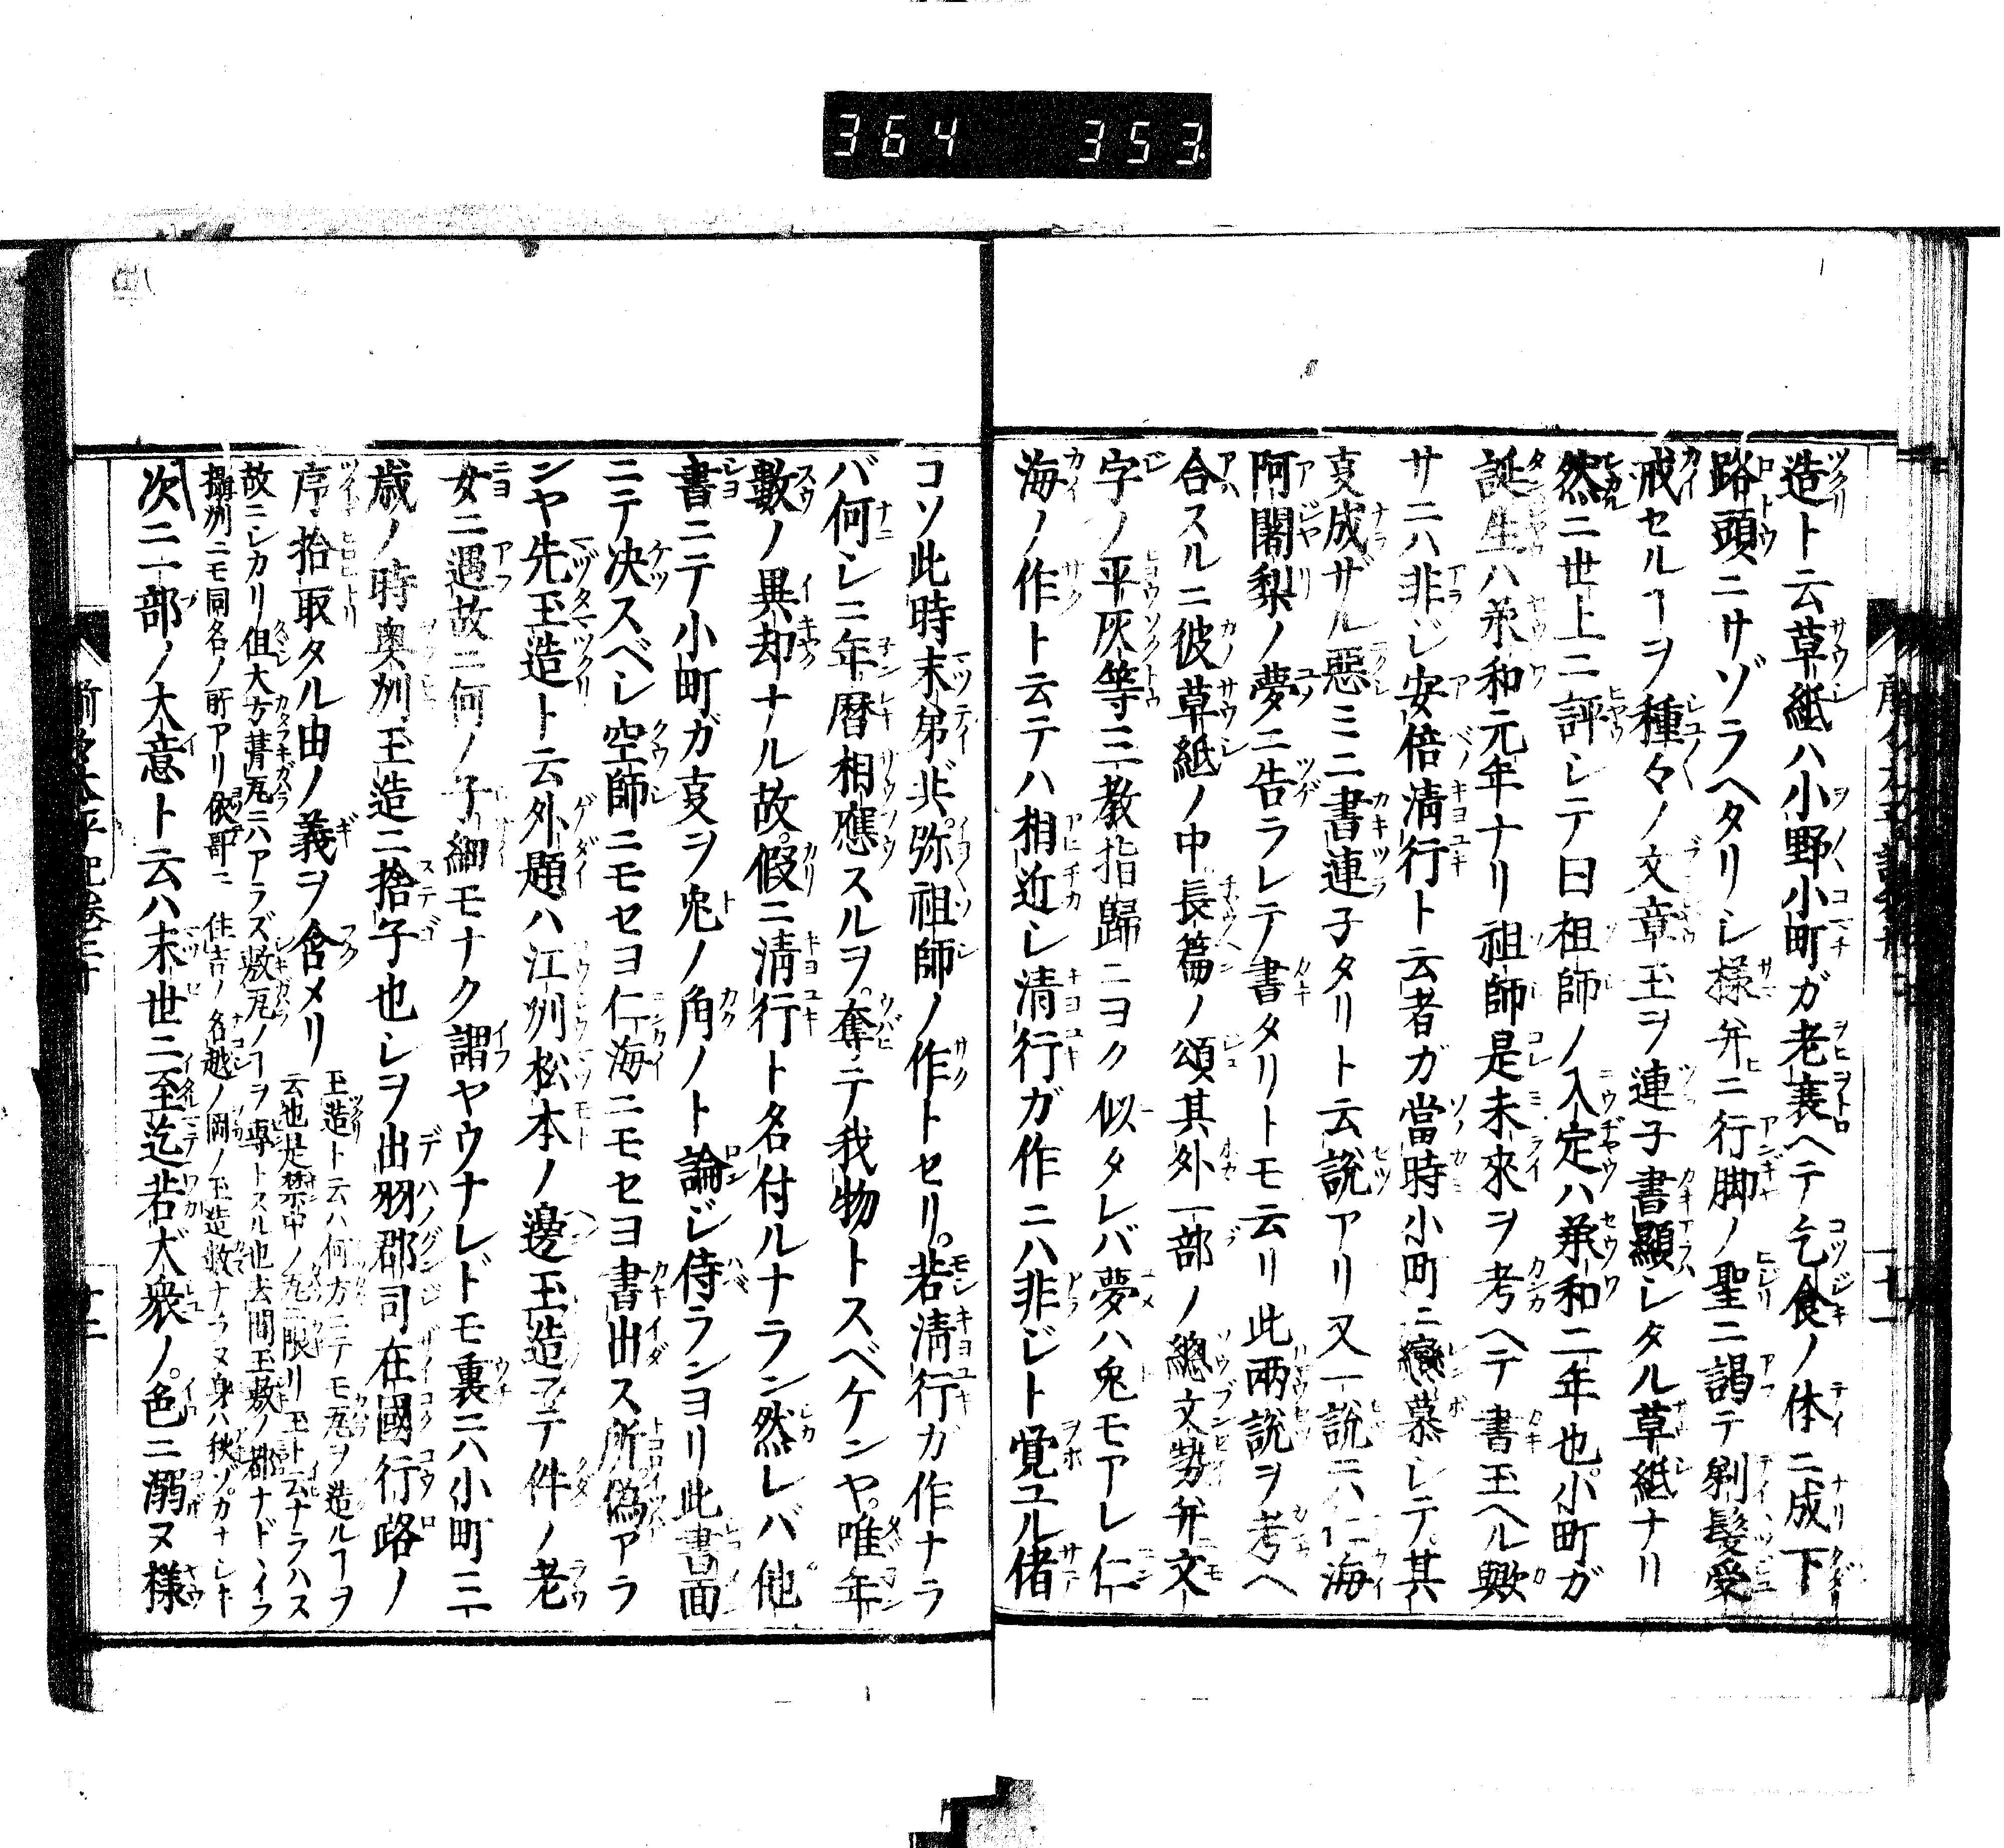 364 353
造ト云草紙ハ小野小町ガ老衰ヘテ乞食ノ体ニ成下
路頭ニサゾラヘタリシ様弁ニ行脚ノ聖ニ謁テ剃髪受
戒セルヿヲ種々ノ文章玉ヲ連子書顯シタル草紙ナリ
然ニ世上ニ評シテ曰祖師ノ入定ハ承和二年也小町ガ
誕生ハ承和元年ナリ祖師是未來ヲ考ヘテ書玉ヘル歟
サニハ非ジ安倍淸行ト云者ガ當時小町ニ戀慕シテ其
叓成ザル惡ミニ書連子タリト云説アリ又一説ニハ仁海
阿闍梨ノ夢ニ告ラレテ書タリトモ云リ此兩説ヲ考ヘ
合スルニ彼草紙ノ中長篇ノ頌其外一部ノ總文勢弁文
字ノ平灰等三教指歸ニヨク似タレバ夢ハ兔モアレ仁
海ノ作ト云テハ相近シ清行ガ作ニハ非ジト覚ユル偖
コソ此時末弟共弥祖師ノ作トセリ若淸行ガ作ナラ
バ何レニ年暦相應スルヲ奪テ我物トスベケンヤ唯年
數ノ異却ナル故假ニ淸行ト名付ルナラン然レバ他
書ニテ小町ガ叓ヲ兎ノ角ノト論ジ侍ランヨリ此書面
ニテ决スベシ空師ニモセヨ仁海ニモセヨ書出ス所偽アラ
ンヤ先玉造ト云外題ハ江州松本ノ邊玉造ヲテ件ノ老
女ニ遇故ニ何ノ子細モナク謂ヤウナレドモ裏ニハ小町三
歳ノ時奥州玉造ニ捨子也シヲ出羽郡司在國行路ノ
序拾取タル由ノ義ヲ含メリ 玉造ト云ハ何方ニテモ瓦ヲ造ルヿヲ
云也是禁中ノ瓦ニ限リ玉ト云ナラハス
故ニシカリ但大方葺瓦ニハアラズ敷瓦ノヿヲ專トスル也去間玉敷ノ都ナドヽイフ
攝州ニモ同名ノ所アリ依哥ニ 住吉ノ名越ノ岡ノ玉造数ナラヌ身ハ秋ゾカナシキ
次ニ一部ノ大意ト云ハ末世ニ至迄若大衆ノ色ニ溺ヌ様